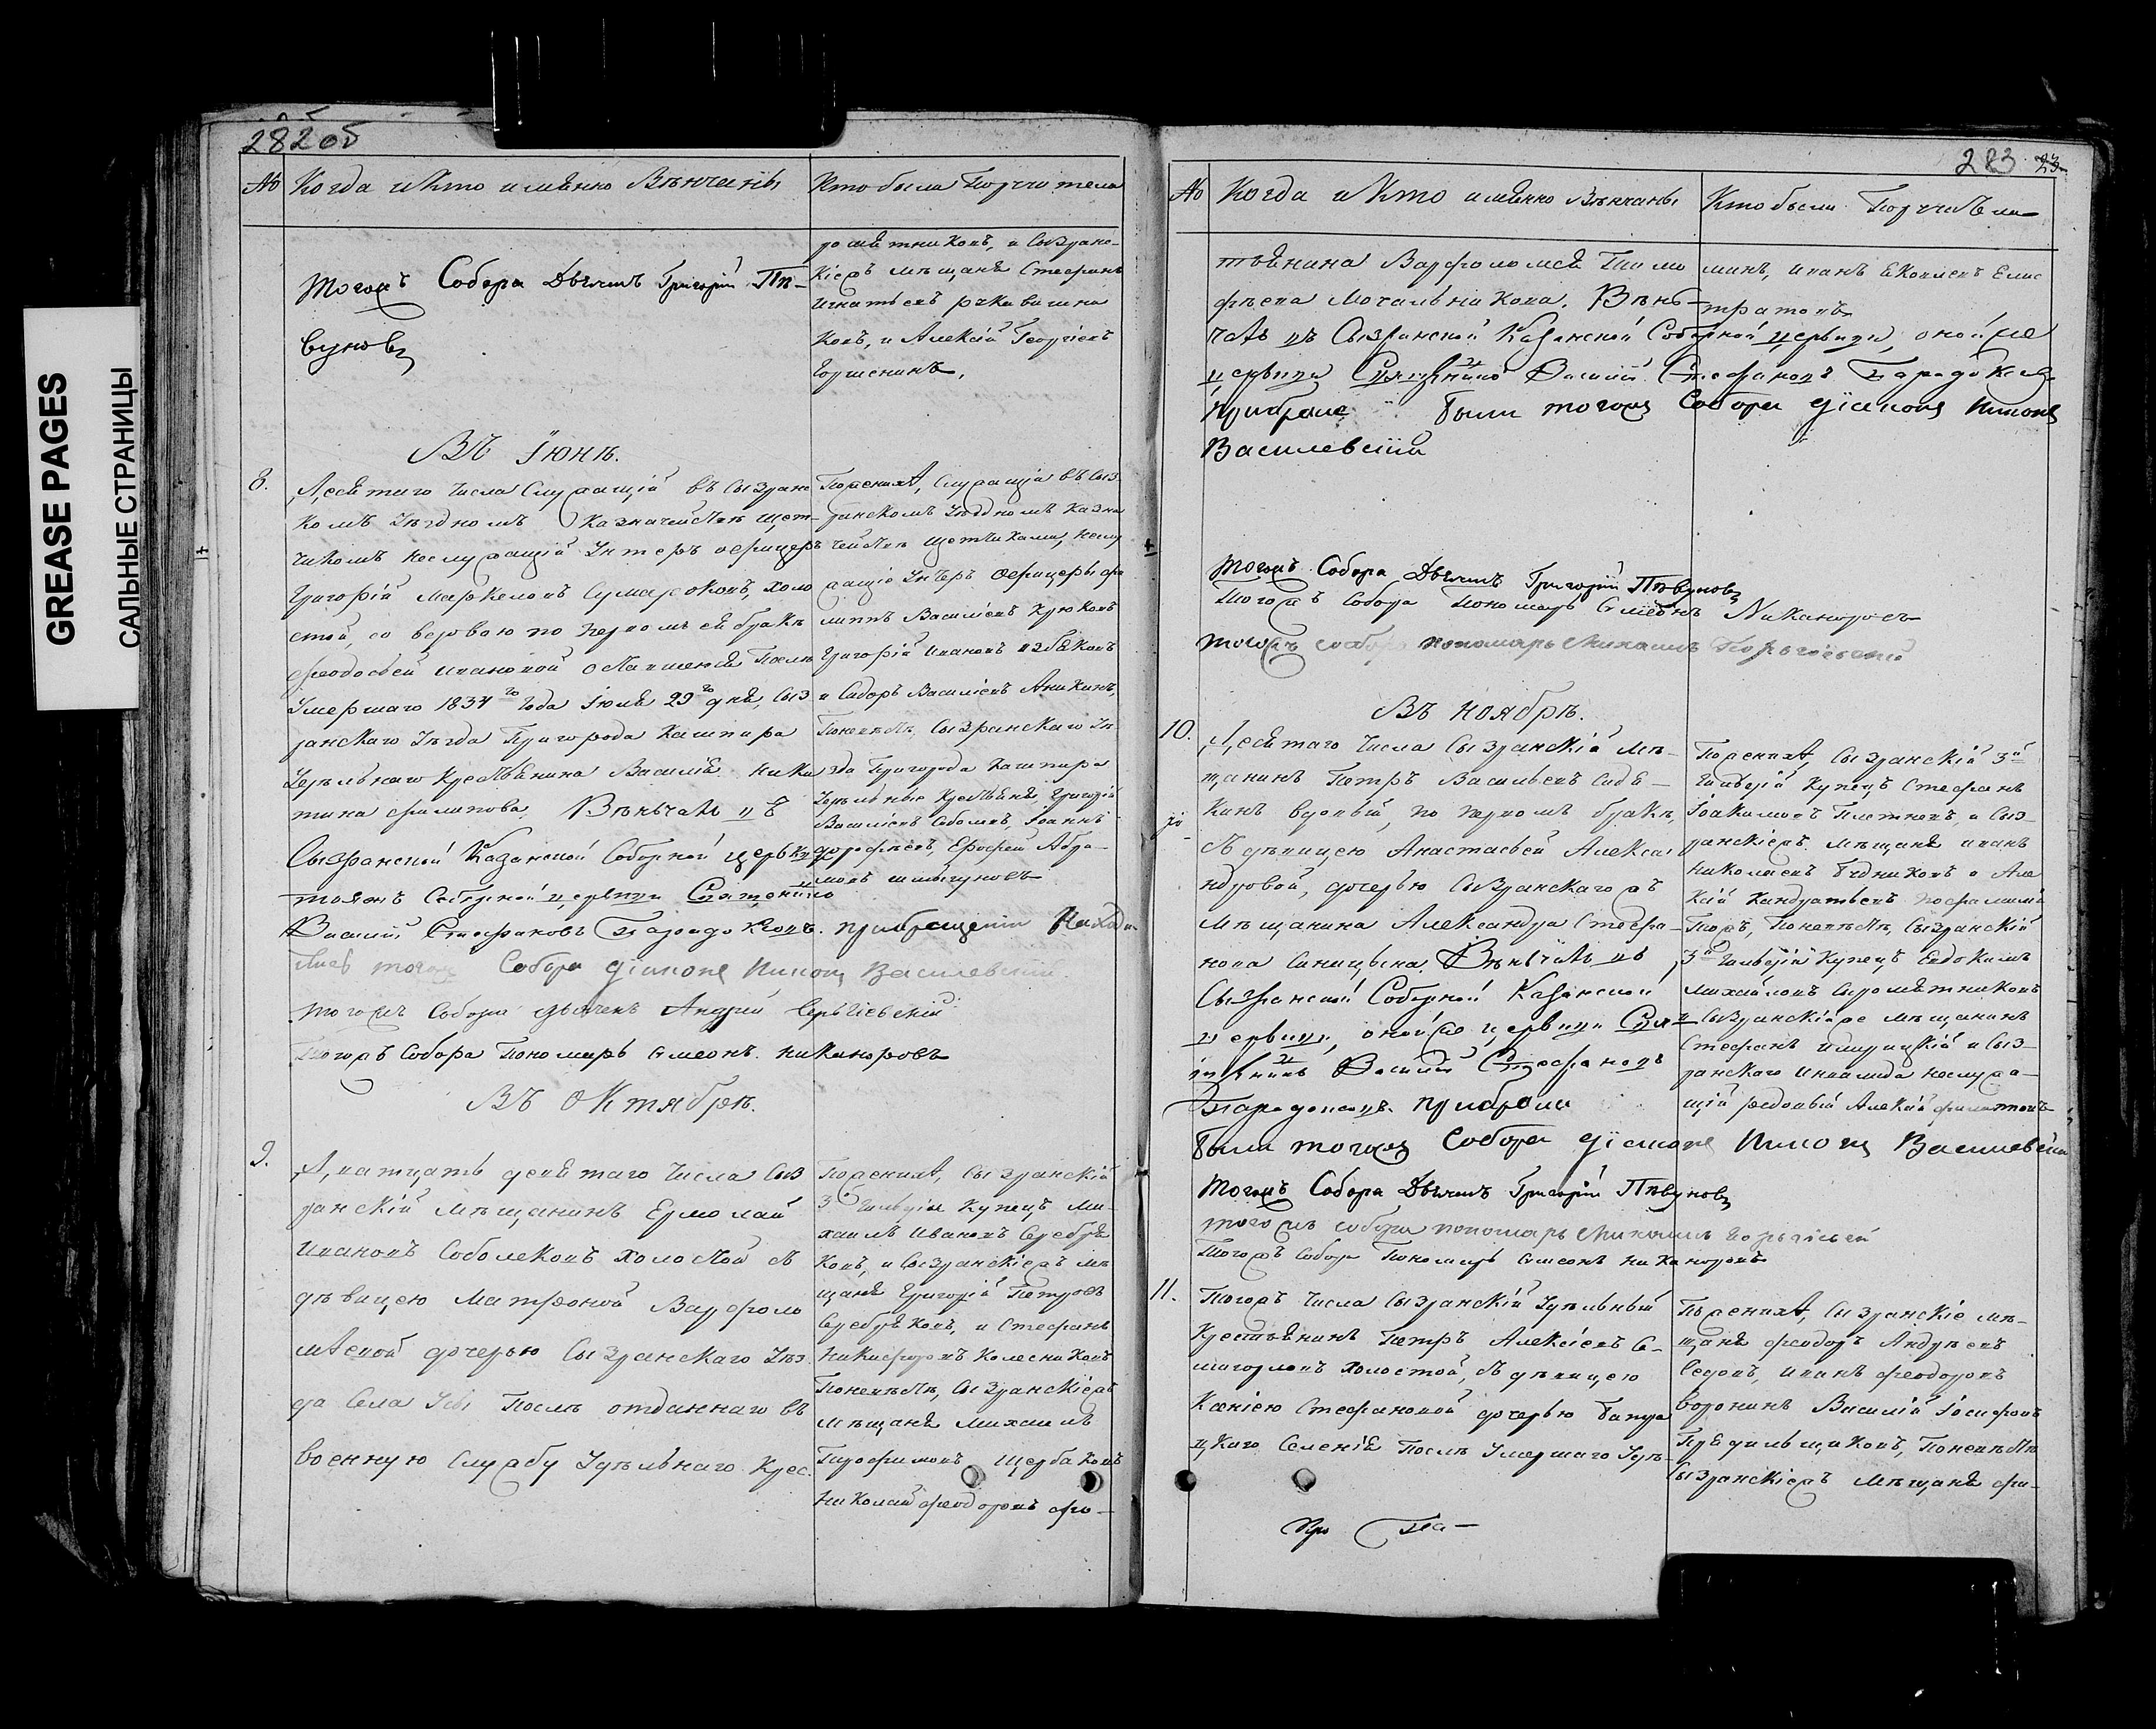 GREASE PAGES
САЛЬНЫЕ СТРАНИЦЫ
282об
№ Когда и Кто имянно Венчаны
Кто были Поручители
Тогожъ Собора Дьячекъ Григорій Пѣ-
вуновъ
ромятниковъ, и Сызран-
скіежъ мѣщаня Стефанъ
Игнатьевъ
ковъ, и Алексій Георгіевъ
Въ Іюнѣ.
8.
Десятаго числа Служащій въ Сызранс
комъ Уѣздномъ Казначействѣ щет-
чикомъ неслужащій Унтеръ офицеръ
Григорій Маркеловъ Сумароковъ, холо
стой, со вдовою по первомъ ей бракѣ
Феодосьей Ивановой оставшейся Послѣ
Умершаго 1834го Года Іюля 29го дня, Сыз
ранскаго Уѣзда Пригорода Кашпира
Удѣльнаго Крестьянина Василія Ники
тина Филипова, Вѣнчалъ въ
Сызранской Казанской Соборной церькви
тояжъ Соборной церкви Священникъ
Василій Стефановъ при бращеніи Находи
лись тогожъ Собора діаконъ Никонъ Василевскій
тогожъ Собора дьячекъ Андрей Сергіевскій
Тогожъ Собора Пономарь Симеонъ Никаноровъ
По женихѣ, служащія въ Сыз
ранскомъ Уѣздномъ Казна
чействѣ щетчиками, неслу
жащіе Унтеръ Офицеры Фи
липпъ Васильевъ Крюковъ
Григорій Ивановъ Избековъ
и Сидоръ Васильевъ Аникинъ,
По невѣстѣ, Сызранскаго Уѣ
зда Пригорода Кашпира
Удѣльные Крестьяня Григорій
Васильевъ Соболевъ, Іоаннъ
Дорофѣевъ, Ерофей Абра-
мовъ
Въ Октябрѣ.
9.
Дватцать девятаго числа Сыз
ранскій мѣщанинъ Ермолай
Ивановъ Соболековъ холостой съ
дѣвицею Матроной Варфоло
мѣевой дочерью Сызранскаго Уѣз
да Села Усы Послѣ отданнаго въ
военную Службу Удѣльнаго Крес.
По женихѣ, Сызранскій
3й Гильдіи Купецъ Ми-
хаилъ Ивановъ Серебря
ковъ, и Сызранскіежъ мѣ
щаня Григорій Петровъ
Серебряковъ, и Стефанъ
Никифоровъ Колесниковъ
По невѣстѣ, Сызранскіежъ
мѣщаня Михаилъ
Трофимовъ Щербаковъ
Николай Феодоровъ Фо-
283 23
№ Когда и Кто имянно Венчаны
Кто были Поручители
тьянина Варфоломея Тимо
фѣева Мочальникова. Вѣн-
чалъ въ Сызранской Казанской Соборной церкви, оной же
церкви Священникъ Василій Стефановъ
при браке были тогожъ Собора діаконъ Никонъ
Василевскій
минъ, Иванъ
тратовъ
Тогожъ Собора Дьячекъ Григорій Пѣвуновъ
Тогожъ Собора Пономарь Симеонъ Никаноровъ
тогожъ собора пономарь Михаилъ
Въ Ноябрѣ.
10.
Десятаго числа Сызранскій мѣ-
щанинъ Петръ Васильевъ Сидя-
кинъ вдовый, по первомъ бракѣ,
съ дѣвицею Анастасьей Алекса
ндровой, дочерью Сызранскагожъ
мѣщанина Александра Стефа-
нова Синицына. Вѣнчалъ въ
Сызранской Соборной Казанской
церкви, оной же церкви Свя-
щенникъ Василій Стефановъ
при браке
были тогожъ Собора діаконъ Никонъ Василевскій
Тогожъ Собора Дьячекъ Григорій Пѣвуновъ
тогожъ собора пономарь Михаилъ
Тогожъ Собора Пономарь Симеонъ Никаноровъ
По женихѣ, Сызранскій 3й
Гильдіи Купецъ Стефанъ
Іоакимовъ Плетневъ, и Сыз-
ранскіежъ мѣщаня Иванъ
Николаевъ Будниковъ и Але
ксій
По невѣстѣ, Сызранскій
3й Гильдіи Купецъ Евдокимъ
Михайловъ Сыромятниковъ
и Сызранскійже мѣщанинъ
Стефанъ и Сыз-
ранскаго Инвалида неслужа-
щій рядовый Алексій Филатовъ
11.
Тогожъ числа Сызранскій Удѣльный
Крестьянинъ Петръ Алексіевъ Се-
магоровъ холостой, съ дѣвицею
Ксеніею Стефановой дочерью
цкаго Селенія Послѣ Умершаго Удѣ-
По женихѣ, Сызранскіе мѣ-
щаня Феодоръ Андрѣевъ
Седовъ, Иванъ Феодоровъ
Воронинъ Василій Іосифовъ
Прядильщиковъ, По невѣстѣ
Сызранскіежъ мѣщаня Фи-